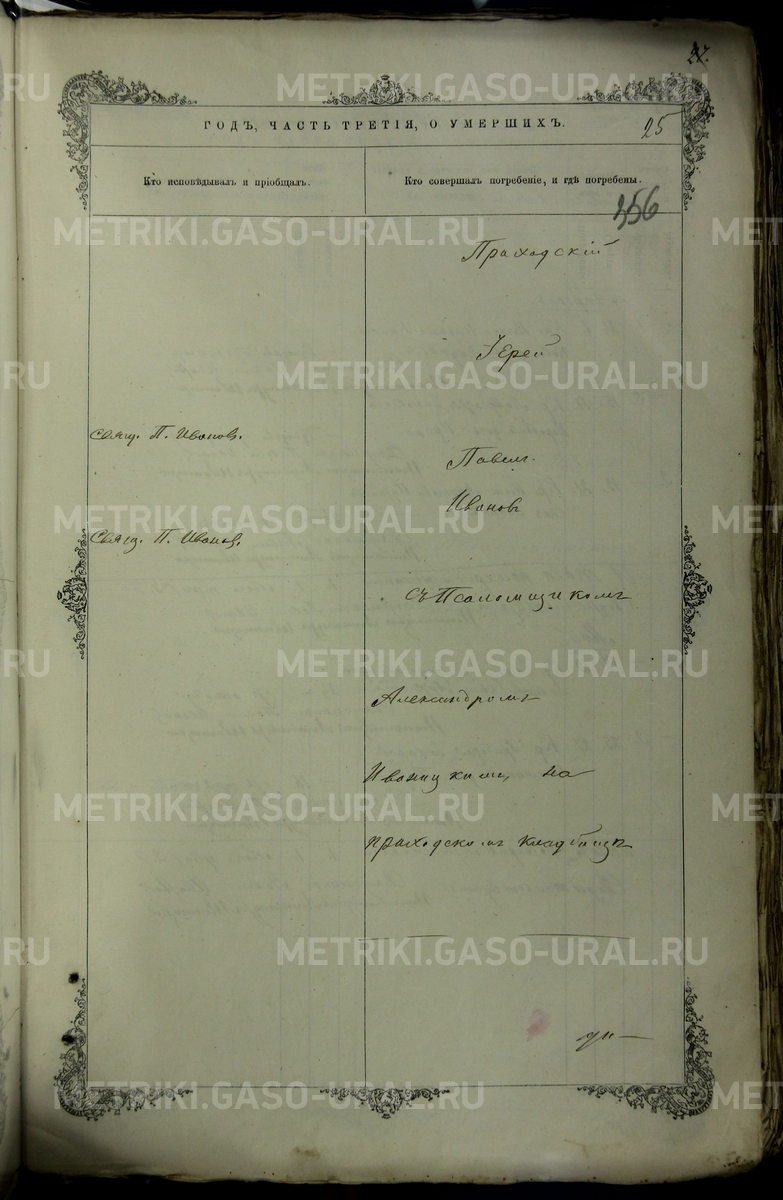 27.
ГОДЪ, ЧАСТЬ ТРЕТІЯ, О УМЕРШИХЪ.
25
Кто исповѣдывалъ и пріобщалъ.
Кто совершалъ погребеніе, и гдѣ погребены.
356
Приходскій
Іерей
Свящ. П. Ивановъ.
Павелъ
Ивановъ
Свящ. П. Ивановъ.
съ Псаломщикомъ
Александромъ
Иваницкимъ, на
приходскомъ кладбищѣ
METRIKI.GASO-URAL.RU